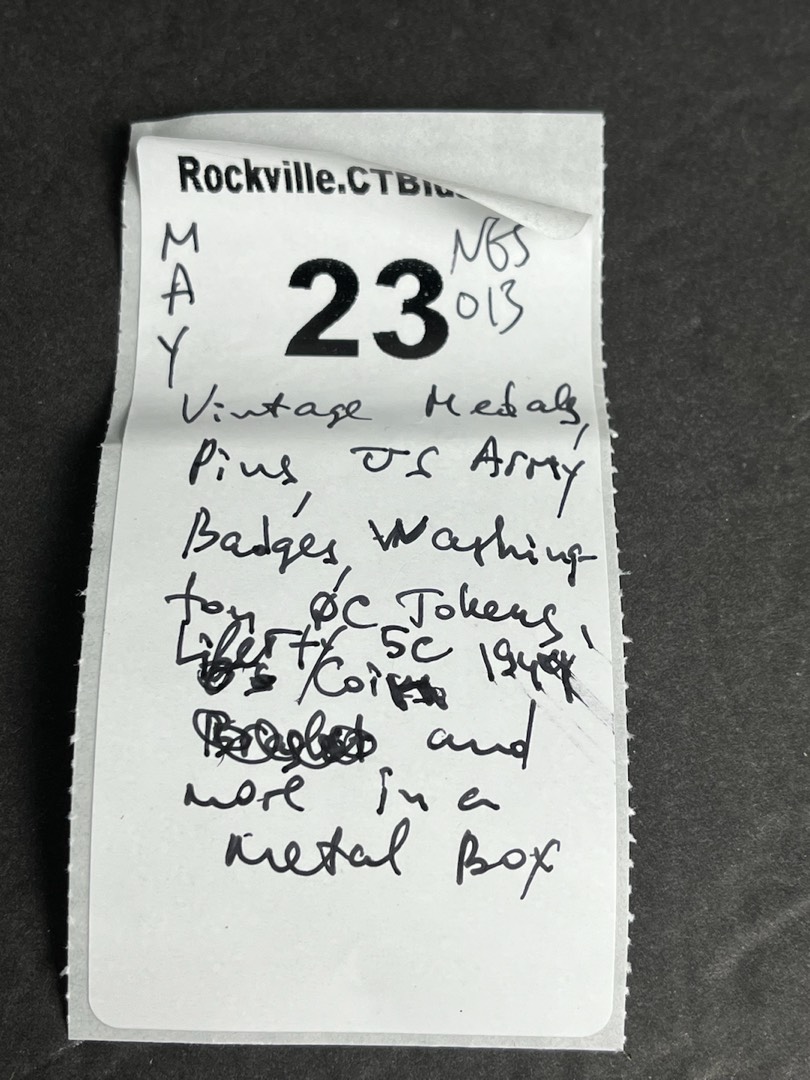 Rockville.CTBl
MAY
23
NGS
013
Vintage Medals,
Pins, US Army
Badges, Washing-
ton DC Tokens,
Liberty 5c
Coin
and
more in a
metal Box